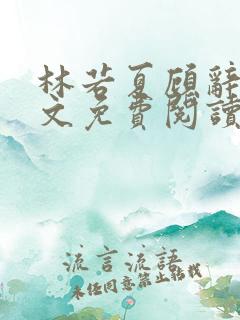 林若夏顾辞
文免費閱讀
流言流語
未经同意禁止转载